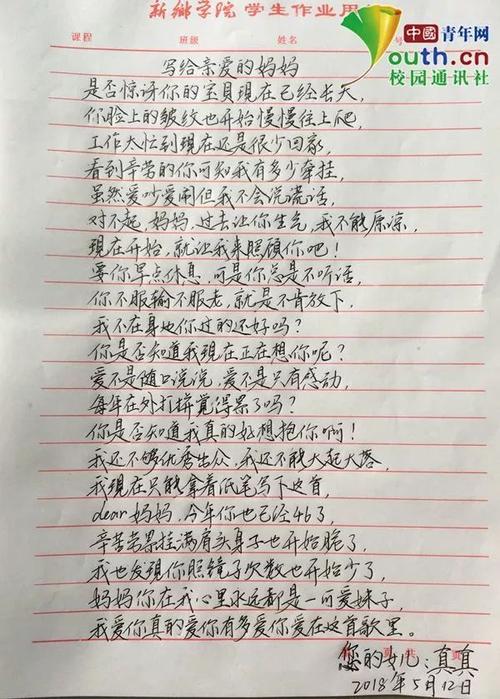 新鄉学院学生作业用
中國青年网
Youth.cn
校园通讯社
课程 班级 姓名 号
写给亲爱的妈妈
是否惊讶你的宝贝现在已经长大,
你脸上的皱纹也开始慢慢往上爬,
工作太忙到现在还是很少回家,
看到辛劳的你可知我有多少牵挂,
虽然爱吵爱闹但我不会说谎话,
对不起,妈妈,过去让你生气,我不能原凉,
现在开始,就让我来照顧你吧!
要你早点休息,可是你总是不听话,
你不服输不服老,就是不肯放下,
我不在身边你过的还好吗?
你是否知道我现在正在想你呢?
爱不是随口说说,爱不是只有感动,
每年在外打拼觉得累了吗?
你是否知道我真的好想抱你啊!
我还不够优秀出众,我还不能大起大落,
我现在只能拿着纸笔写下这首,
dear妈妈,今年你也已经46了,
辛苦劳累挂满眉头身子也开始脆了,
我也发现你照镜子次数也开始少了,
妈妈你在我心里永远都是一可爱妹子,
我爱你真的爱你有多爱你爱在这首歌里。
共 页
您的女儿:真真
2018年5月12日